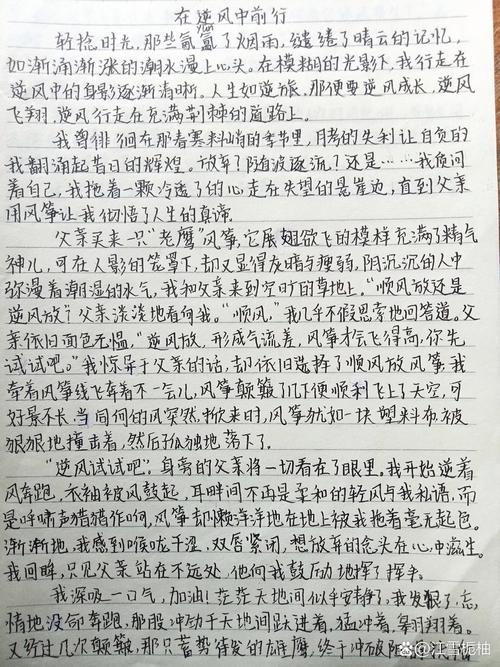 在逆风中前行
轻捻时光,那些氤氲了烟雨,缱绻了晴云的记忆,
如渐涌渐涨的潮水漫上心头。在模糊的光影下,我行走在
逆风中的身影逐渐清晰。人生如逆旅,那便要逆风成长,逆风
飞翔,逆风行走在充满荆棘的道路上。
我曾徘徊在那春寒料峭的季节里,月考的失利让自负的
我翻涌起昔日的辉煌。放弃了?随波逐流了?还是……我质问
着自己,我拖着一颗冷透了的心走在失望的悬崖边,直到父亲
用风筝让我彻悟了人生的真谛。
父亲买来一只“老鹰”风筝,它展翅欲飞的模样充满了精气
神儿,可在人影的笼罩下,却又显得灰暗与瘦弱,阴沉沉的人中
弥漫着潮湿的水气,我和父亲来到空旷的草地上。“顺风放还是
逆风放?”父亲淡淡地看向我。“顺风。”我几乎不假思索地回答道。父
亲依旧面色无愠,“逆风放,形成气流差,风筝才会飞得高,你先
试试吧。”我惊异于父亲的话,却依旧选择了顺风放风筝。我
牵着风筝线飞奔着不一会儿,风筝颠簸了几下便顺利飞上了天空,可
好景不长,当同向的风突然掀来时,风筝犹如一块塑料布,被
狠狠地撞击着,然后孤独地落下了。
“逆风试试吧”,身旁的父亲将一切看在了眼里。我开始逆着
风奔跑,衣袖被风鼓起,耳畔间不再是柔和的轻风与我私语,而
是呼啸声猎猎作响,风筝却懒洋洋地在地上被我拖着毫无起色。
渐渐地,我感到喉咙干涩,双唇紧闭,想放弃的念头在心中滋生。
我回眸,只见父亲站在不远处,他向我鼓励地挥了挥手。
我深吸一口气,加油!茫茫天地间似乎安静了,我发狠了,忘
情地没命奔跑,那股冲劲于天地间跃进着,猛冲着,翱翔着。
又经过几次颠簸,那只蓄势待发的雄鹰,终于冲破
江雪栀柚